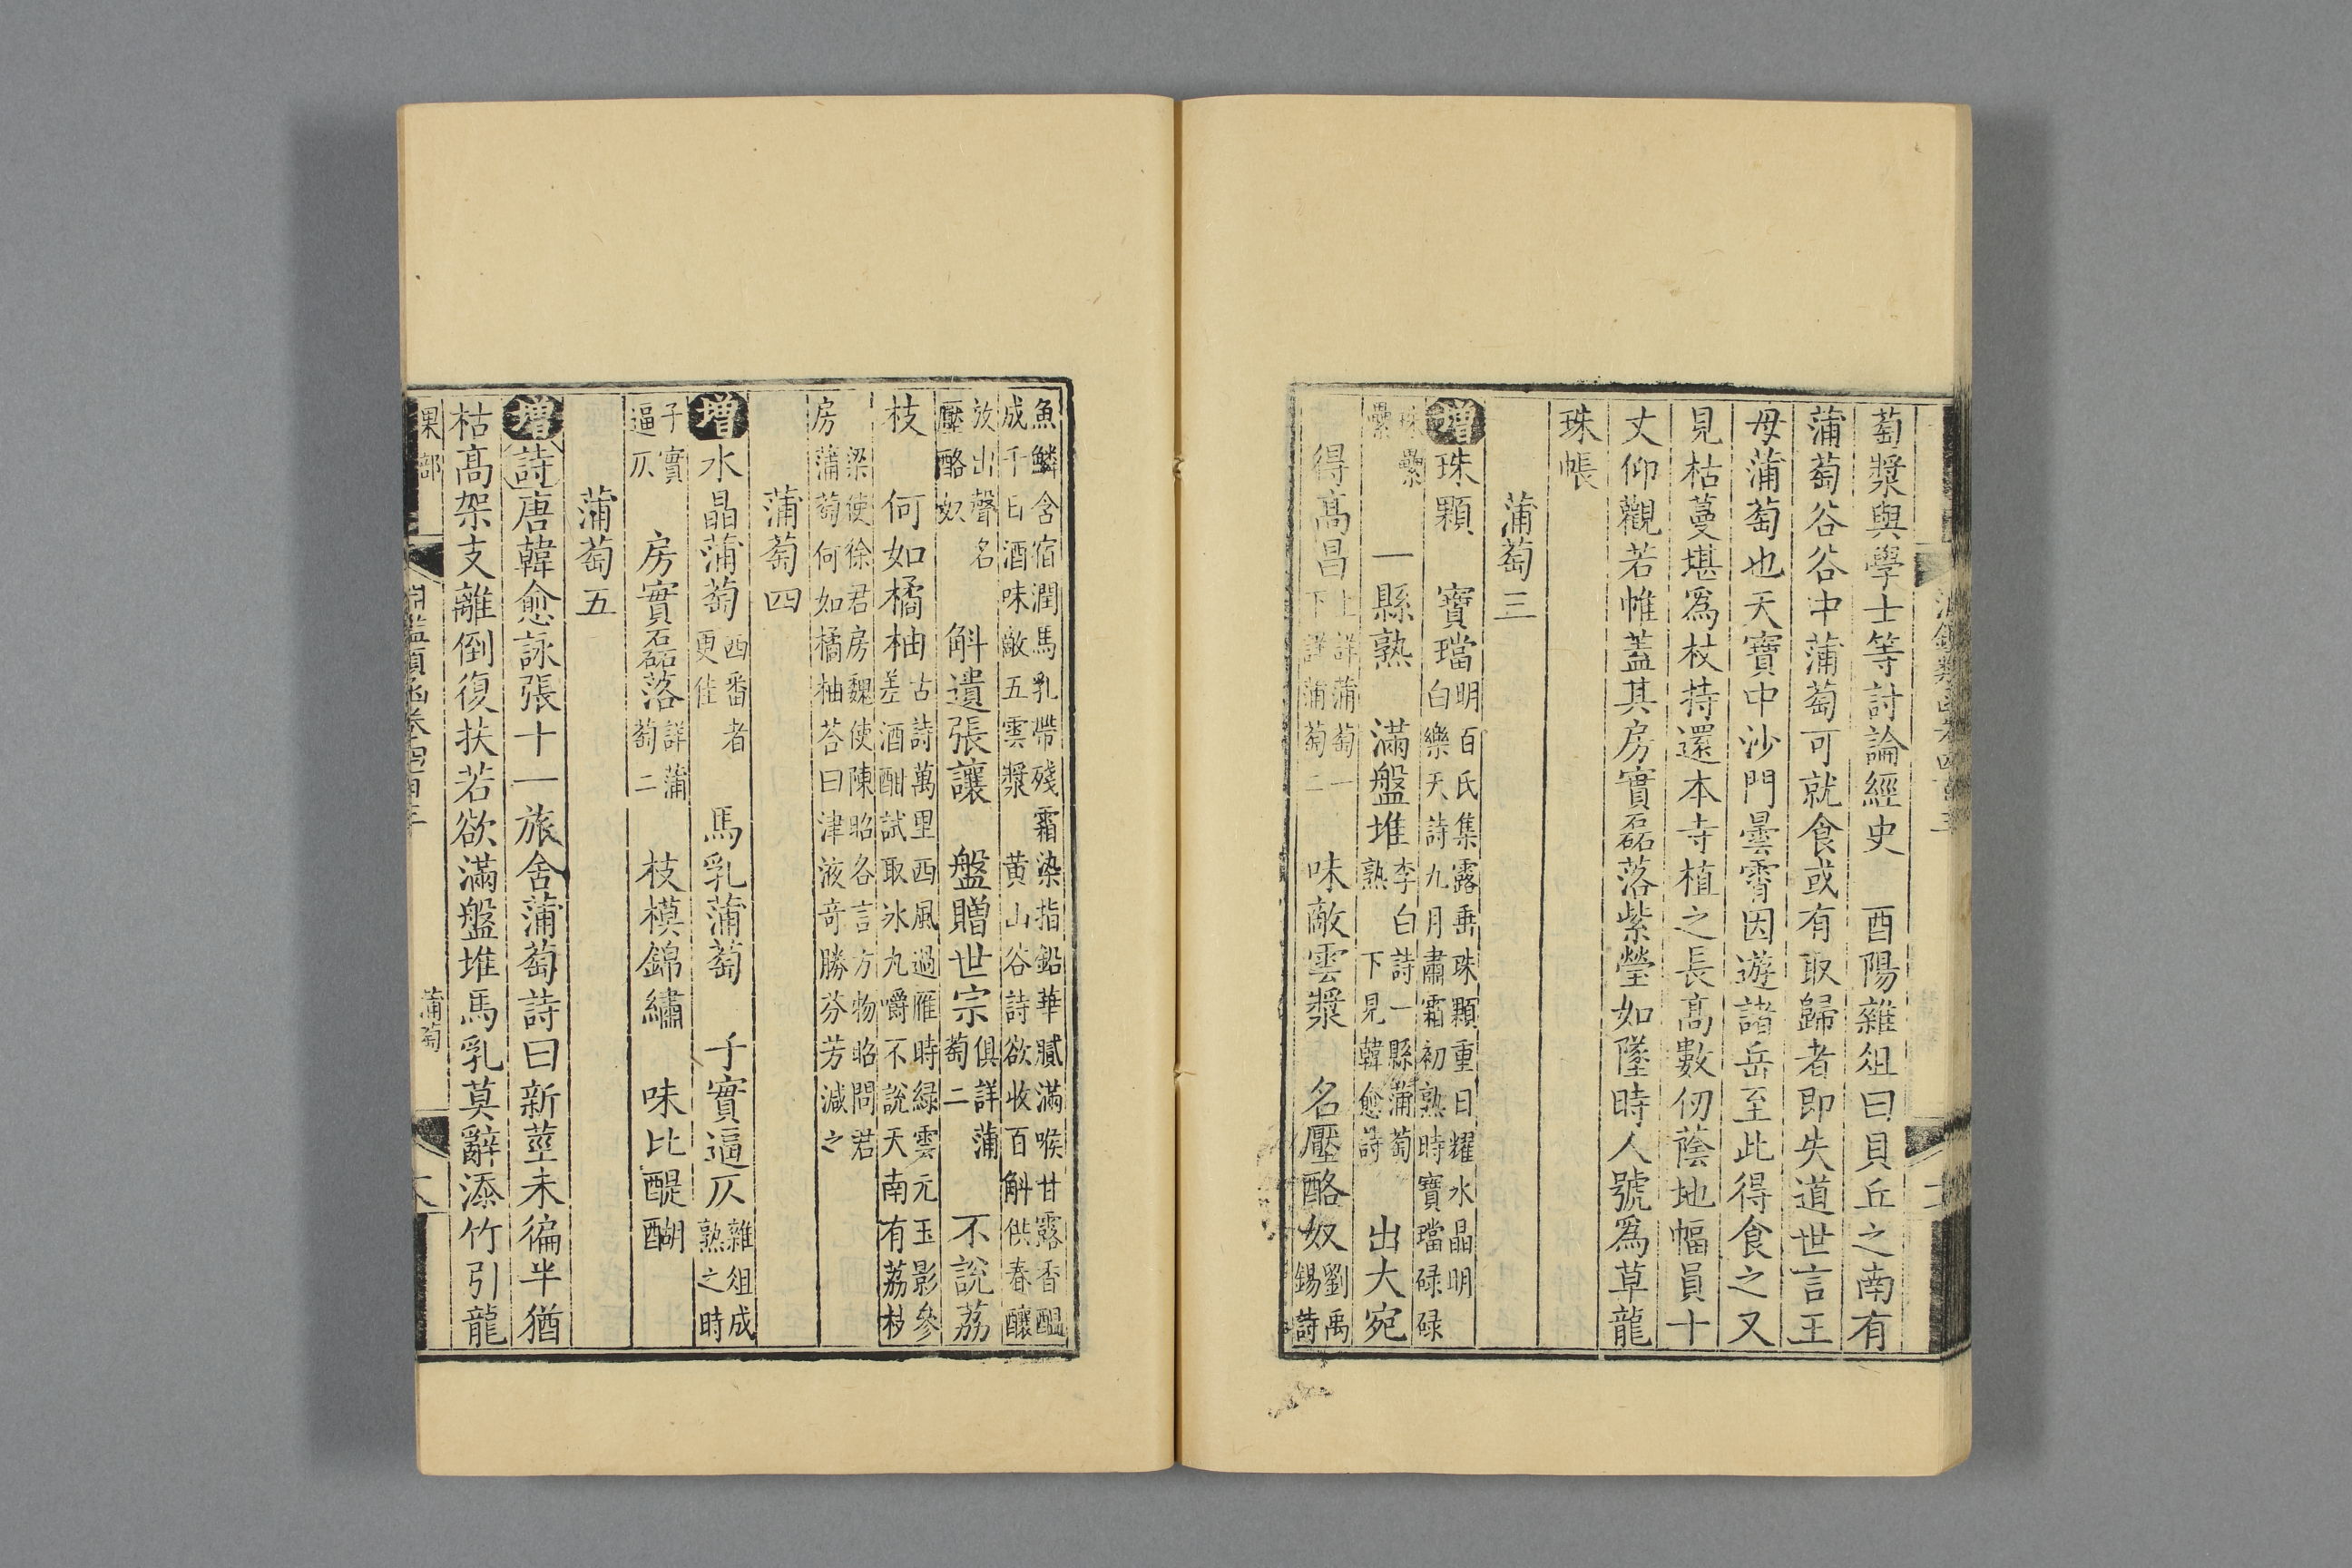 萄漿與學士等討論經史　酉陽雜俎曰貝丘之南有
蒲萄谷谷中蒲萄可就食或有取歸者即失道世言王
母蒲萄也天寶中沙門曇霄因遊諸岳至此得食之又
見枯蔓堪爲杖持還本寺植之長高數仞蔭地幅員十
丈仰觀若帷蓋其房實磊落紫瑩如墜時人號爲草龍
珠帳
蒲萄三
增珠顆　寶璫明百氏集露垂珠顆重日耀水晶明
白樂天詩九月肅霜初熟時寶璫碌碌
珠纍
纍　一縣熟　滿盤堆李白詩一縣蒲萄
熟　下見韓愈詩　出大宛
得高昌上詳蒲萄一
下詳蒲萄二　味敵雲漿　名壓酪奴劉禹
錫詩
魚鱗含宿潤馬乳帶殘霜染指鉛華膩滿喉甘露香醞
成千日酒味敵五雲漿　黄山谷詩欲收百斛供春釀
放出聲名
壓酪奴　斛遺張讓　盤贈世宗俱詳蒲
萄二　不說荔
枝　何如橘柚古詩萬里西風過雁時緑雲元玉影參
差酒酣試取冰丸嚼不說天南有荔枝
梁使徐君房魏使陳昭各言方物昭問君
房蒲萄何如橘柚荅曰津液奇勝芬芳減之
蒲萄四
增水晶蒲萄西番者
更佳　馬乳蒲萄　子實逼仄雜俎成
熟之時
子實
逼仄　房實磊落詳蒲
萄二　枝模錦繡　味比醍醐
蒲萄五
增詩唐韓愈詠張十一旅舍蒲萄詩曰新莖未徧半猶
枯高架支離倒復扶若欲滿盤堆馬乳莫辭添竹引龍
果部
蒲萄